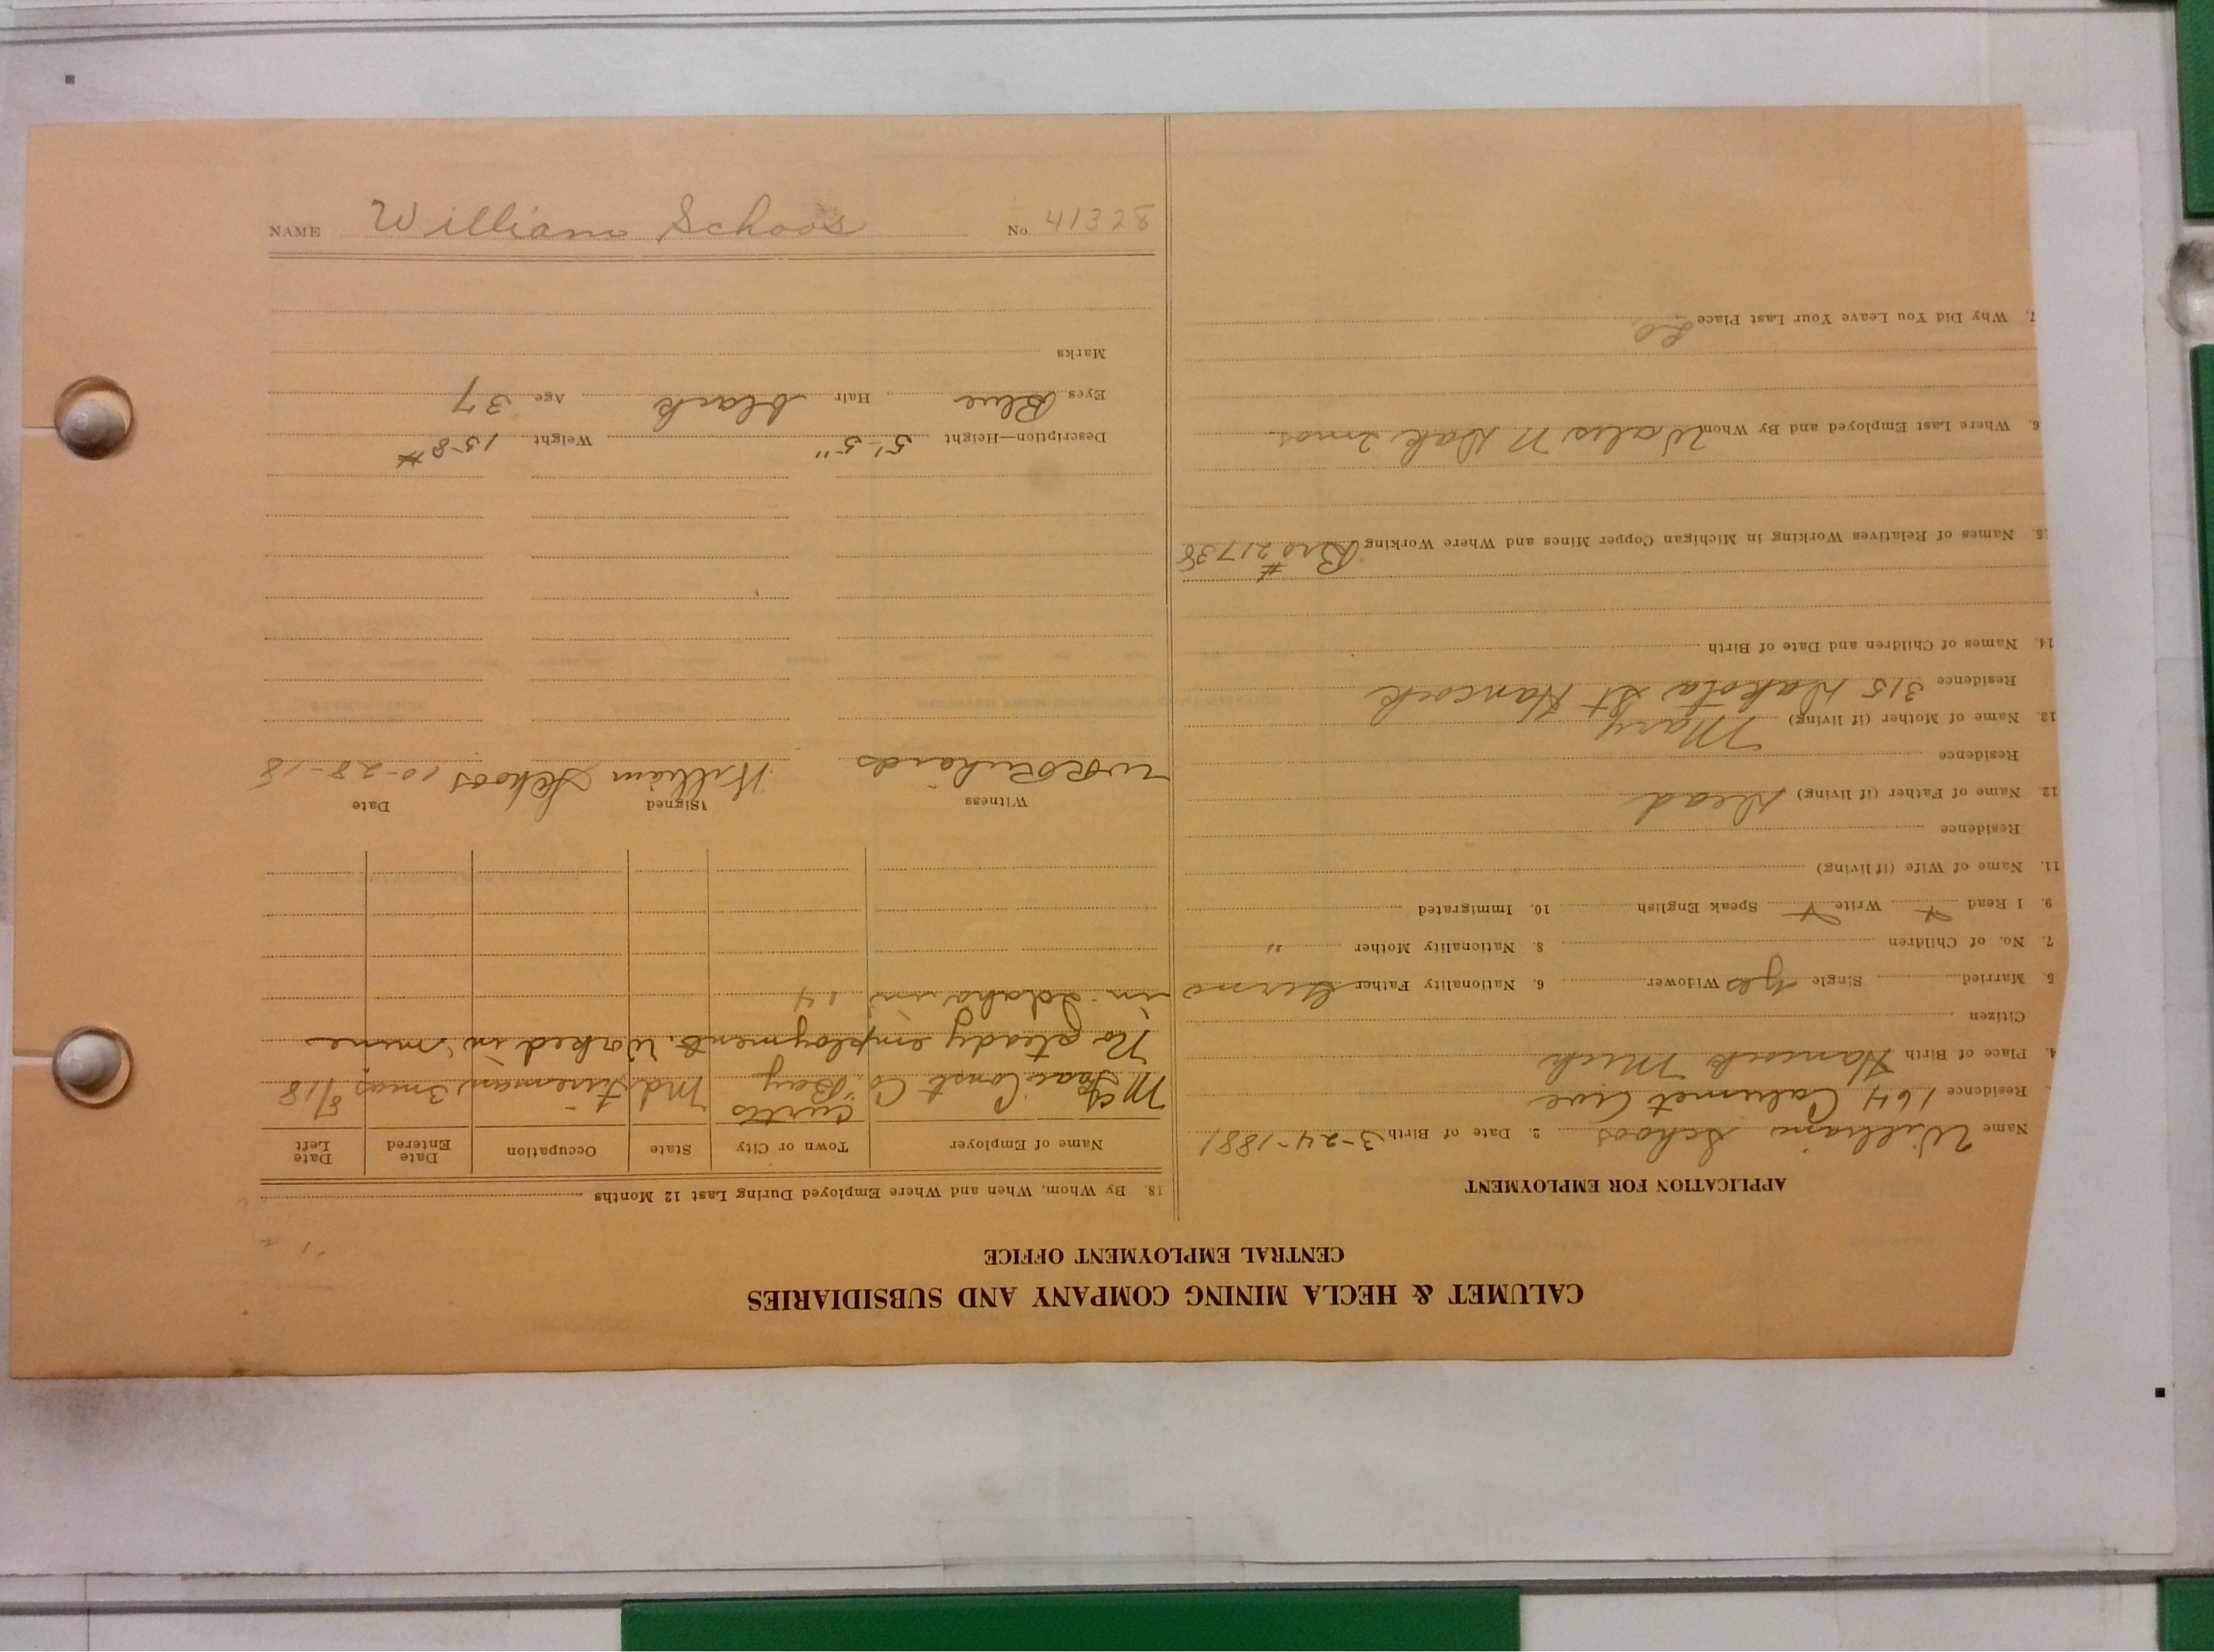 NAME William Schoos No. 41328
CALUMET & HECLA MINING COMPANY AND SUBSIDIARIES
CENTRAL EMPLOYMENT OFFICE
APPLICATION FOR EMPLOYMENT
Name William Schoos 2. Date of Birth 3-24-1881
Residence 164 Calumet Ave
4. Place of Birth Hancock Mich
Citizen
5. Married Single yes Widower 6. Nationality Father
7. No. of Children 8. Nationality Mother "
9. I Read x Write x Speak English 10. Immigrated
11. Name of Wife (if living)
Residence
12. Name of Father (if living) Dead
Residence
13. Name of Mother (if living) Mary
Residence 315 Dakota St Hancock
14. Names of Children and Date of Birth
15. Names of Relatives Working in Michigan Copper Mines and Where Working Bro # 21738
6. Where Last Employed and By Whom 2 mos
7. Why Did You Leave Your Last Place
18. By Whom, When and Where Employed During Last 12 Months
Name of Employer Town or City State Occupation Date Entered Date Left
Const Co. Curtis Bay Md Fireman 3 mos 8/18
No steady employment. Worked in mine
in Idaho in 14
Witness Signed Date
William Schoos 10-28-18
Description—Height 5'-5" Weight 158 #
Eyes Blue Hair black Age 37
Marks